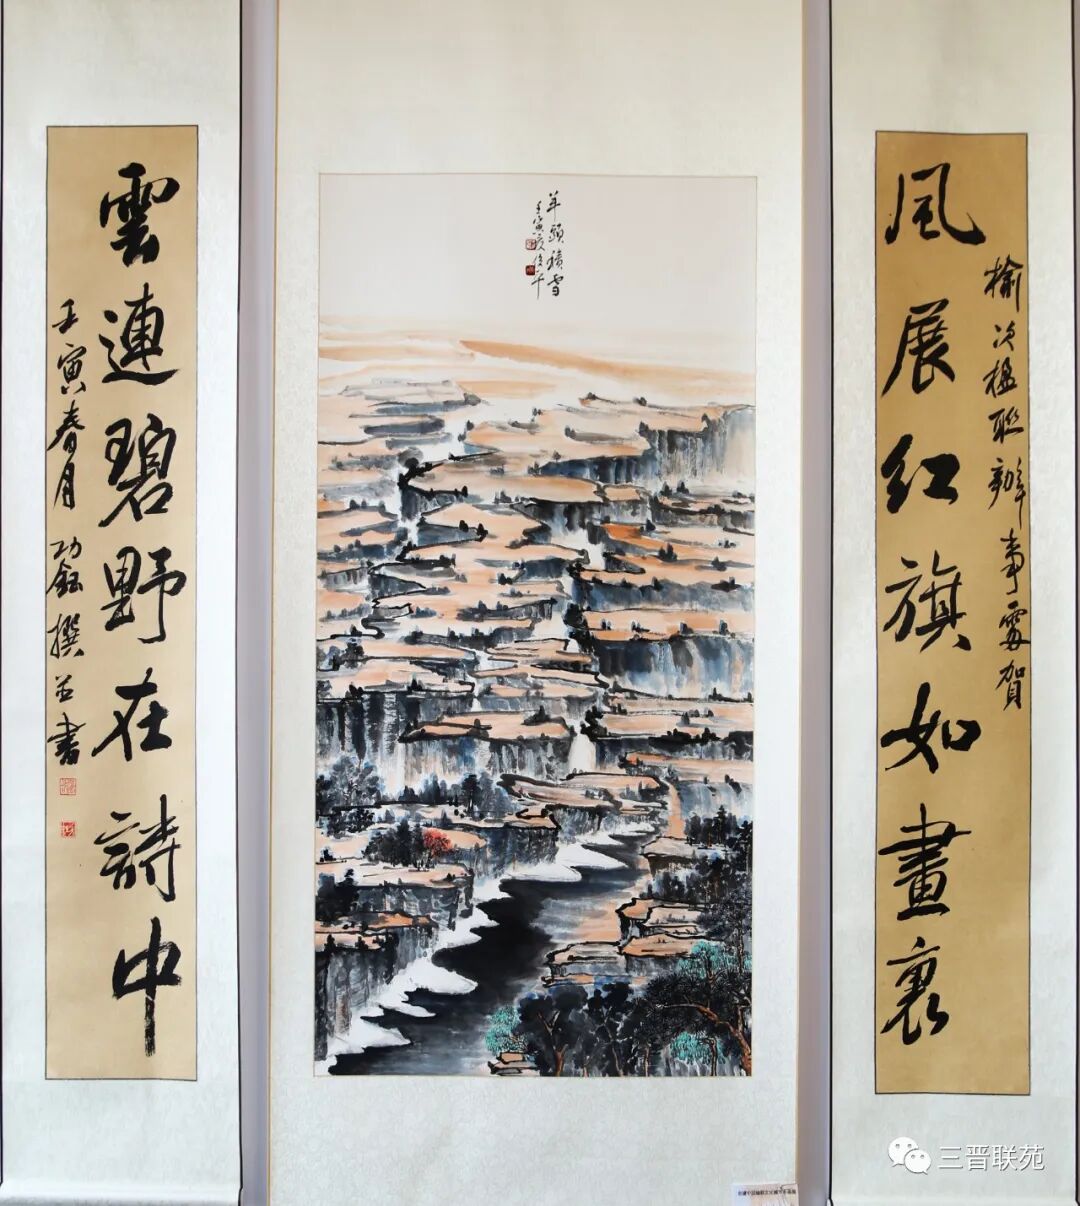 榆次楹联辦事處賀
风展红旗如畫裏
羊頭積雪
壬寅夏俊平
雲連碧野在詩中
壬寅春月 功鈺撰并書
三晋联苑